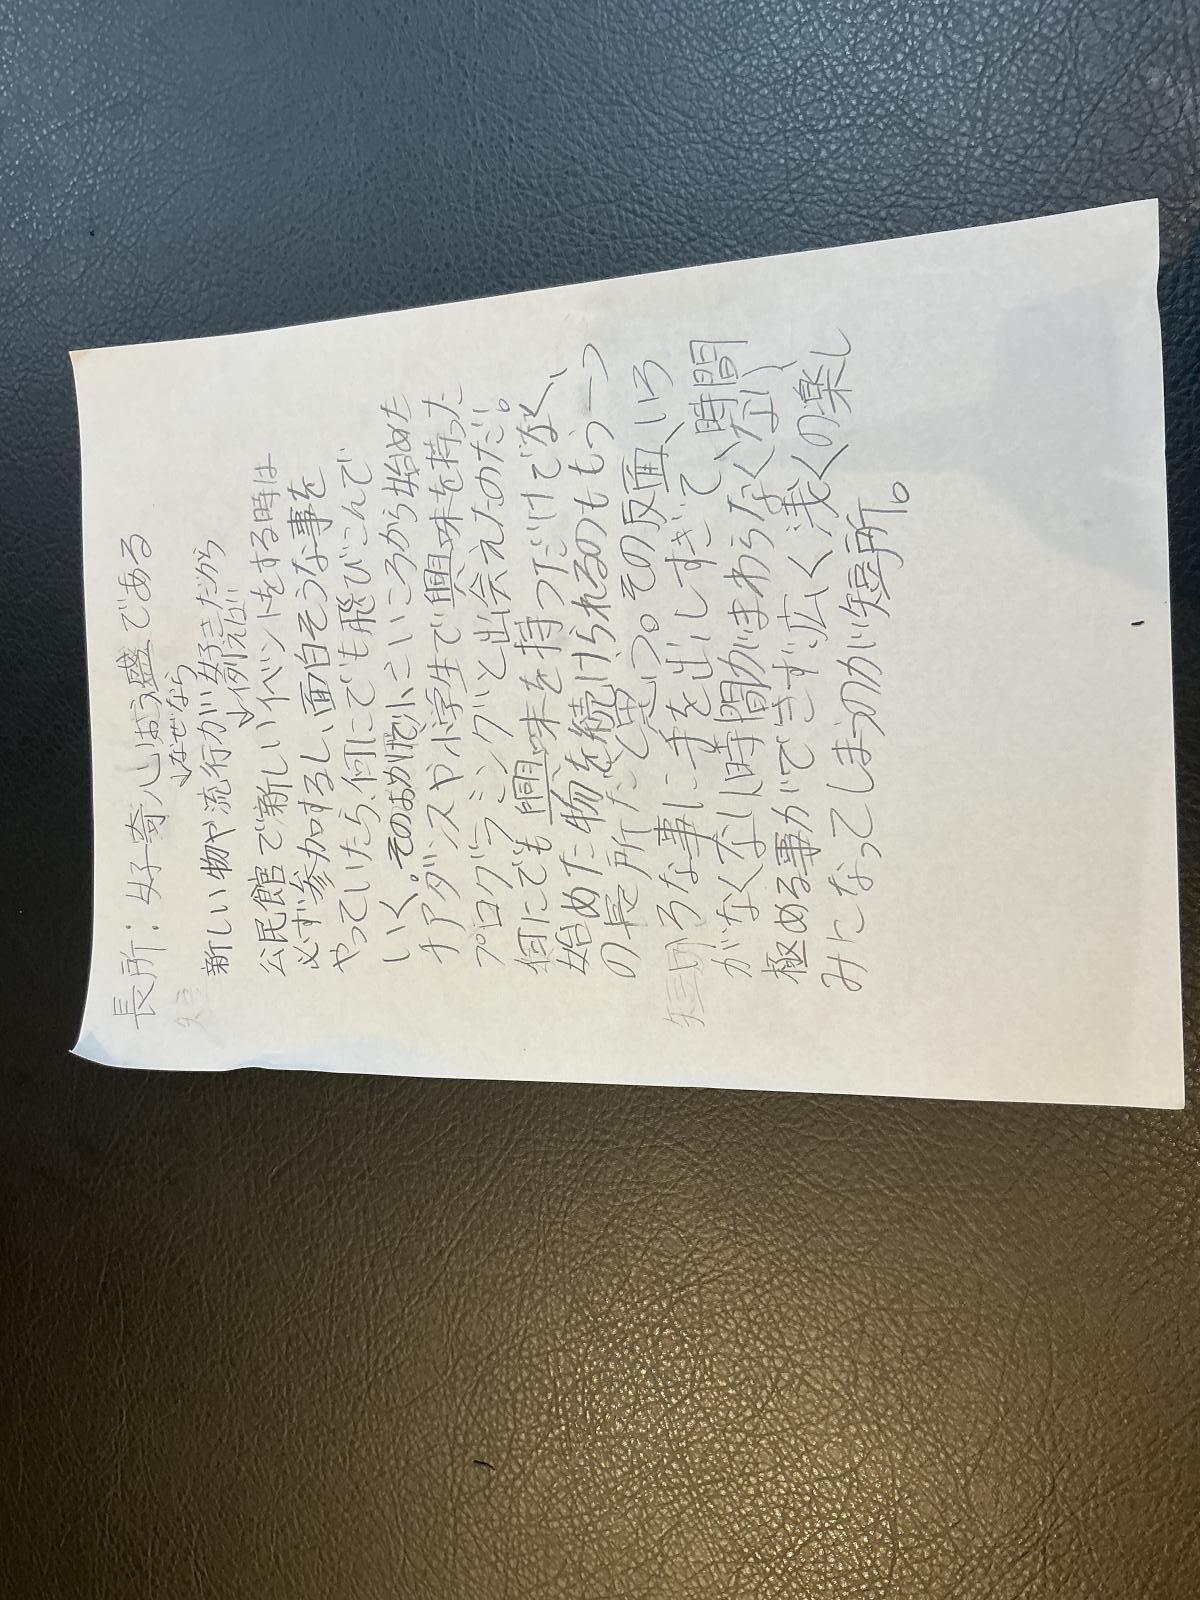 長所：好奇心おう盛である
↓なぜなら
新しい物や流行が好きだから
↓例えば
公民館で新しいイベントをする時は
必ず参加するし、面白そうな事を
やっていたら、何にでも飛びこんで
いく。そのおかげで小さいころから始めた
チアダンスや小学生で興味を持った
プログラミングと出会えたのだ。
何にでも興味を持つだけでなく、
始めた物を続けられるのももう一つ
の長所だと思う。その反面、いろ
いろな事に手を出しすぎて、時間
がなくなり時間がまわらなくなり
極める事ができず広く浅くの楽し
みになってしまうのが短所。